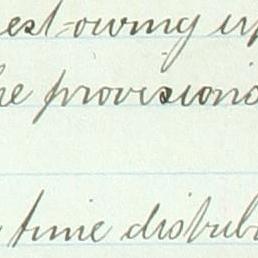 est-owing up
he provisiona
time distrib